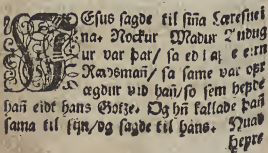 JEsus sagde til sina Læresuei
na. Nockur Madur Audug
ur var þar/ sa ed
Rædsman/ sa same var opr
ægdur vid han̄/ so sem hefde
han̄ eidt hans Gotze. Og hn̄ kallade þan̄
sama til sijn/og sagde til hans. Huad
heyre